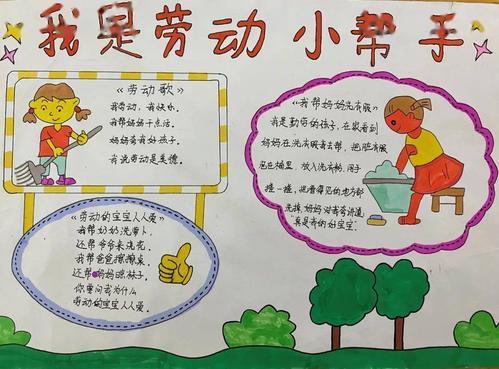 我是劳动小帮手
《劳动歌》
我劳动，我快乐。
我帮妈妈干点活。
妈妈夸我好孩子。
我说劳动是美德。
《我帮妈妈洗衣服》
我是勤劳的孩子，在家看到
妈妈在洗衣服去帮，把脏衣服
泡在桶里，放入洗衣粉，用手
搓一搓，把看得见的也方都
洗掉，妈妈对着我讲道，
"真是我的好宝宝"
《劳动的宝宝人人爱》
我帮奶奶洗萝卜，
还帮爷爷来浇花，
我帮爸爸擦擦桌，
还帮妈妈晾袜子，
你要问我为什么
劳动的宝宝人人爱。